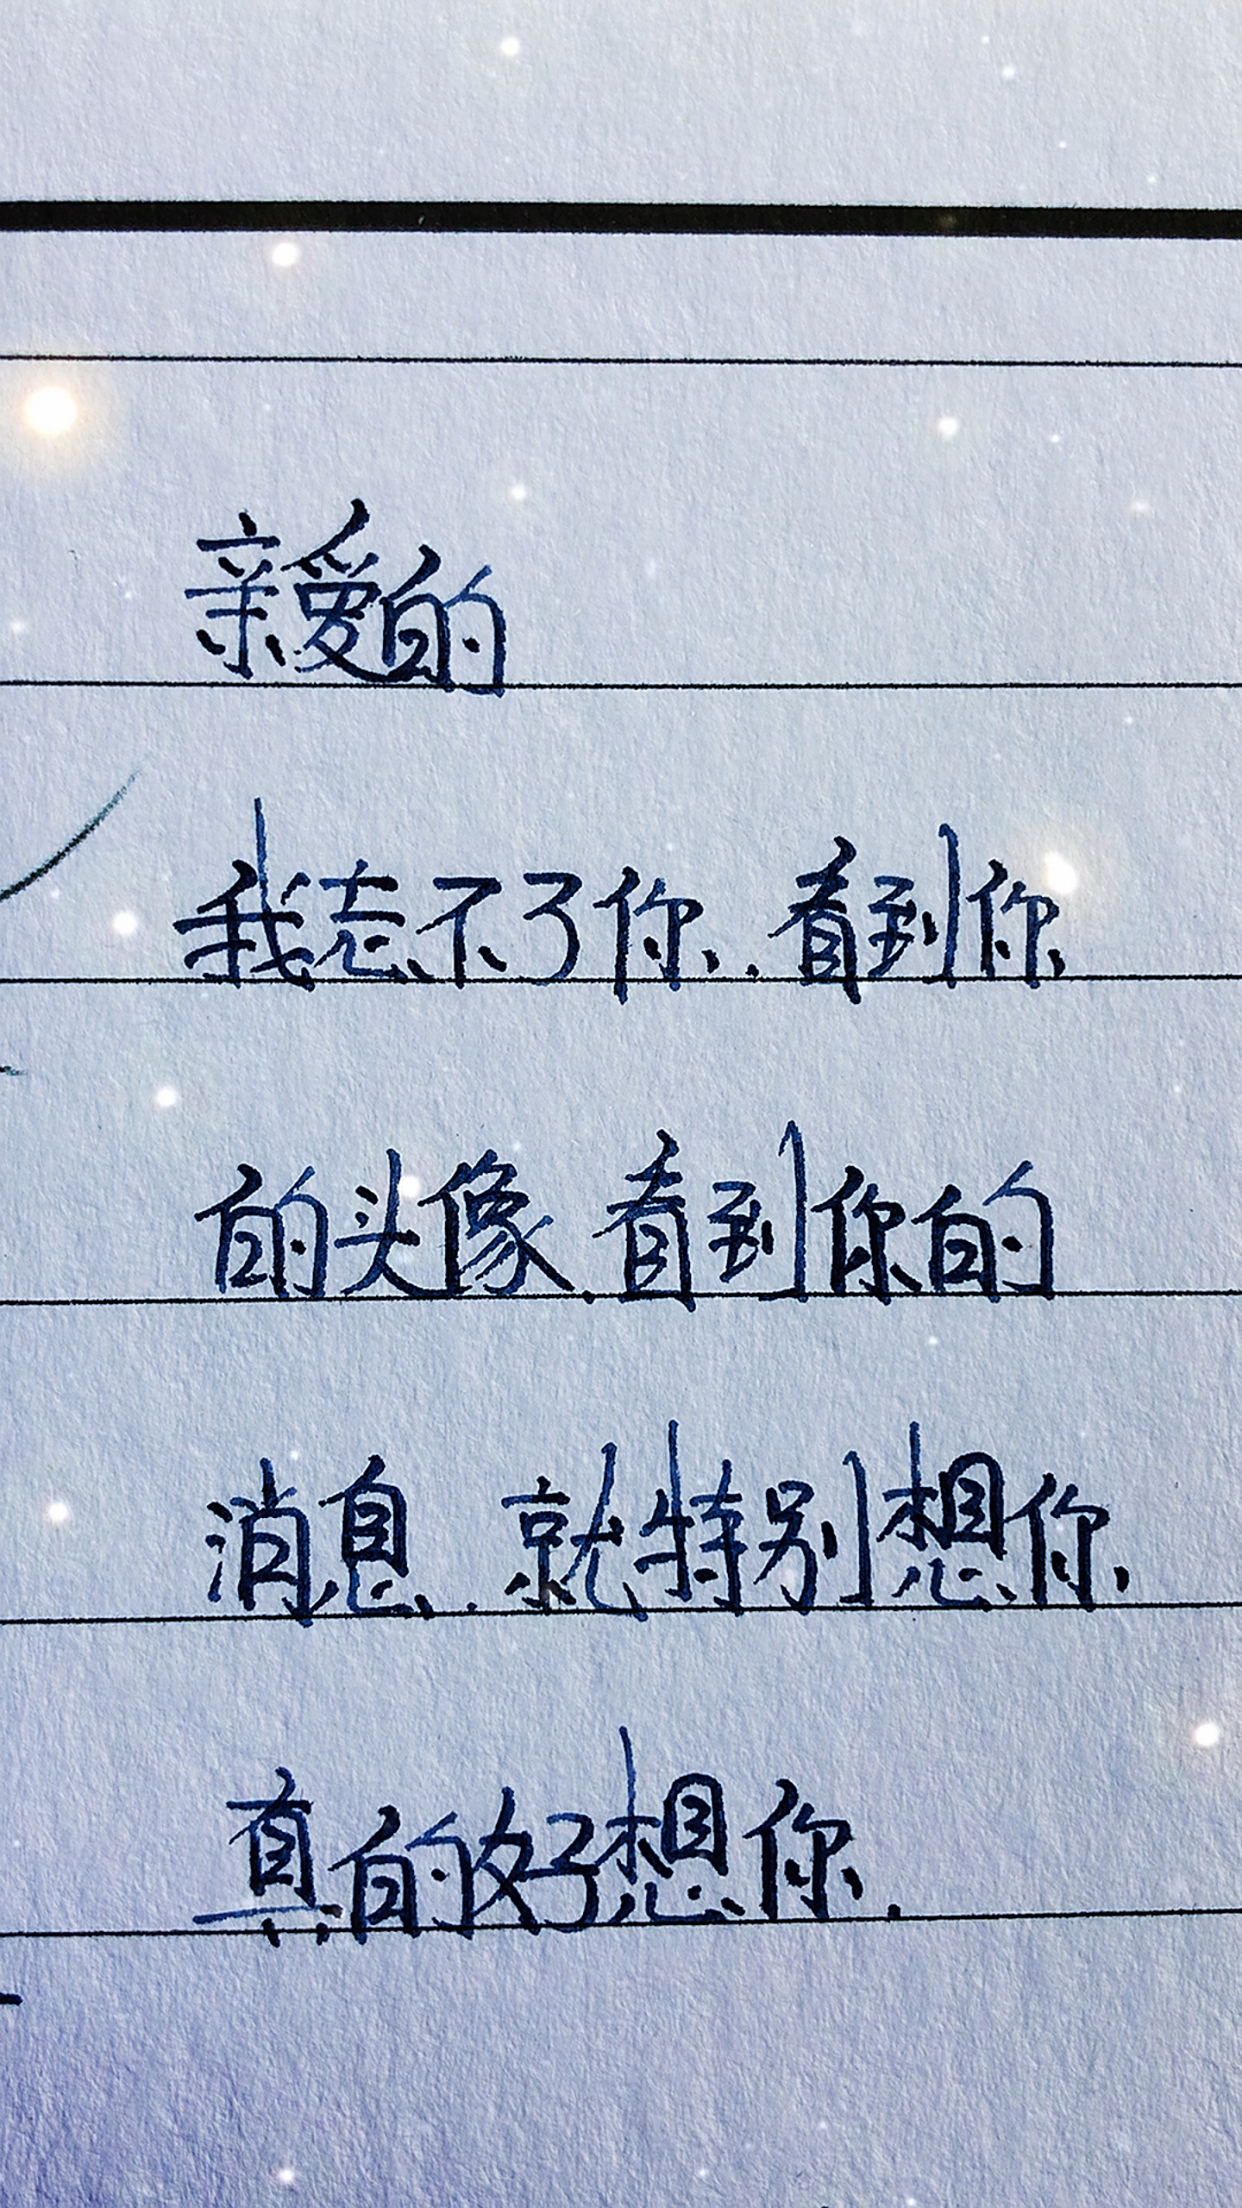 亲爱的
我忘不了你..看到你
的头像.看到你的
消息..就特别想你
真的好想你.